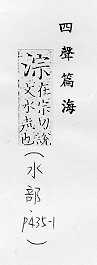 四聲篇海
淙
在宗切說
文水聲也
(水部.P435-1)